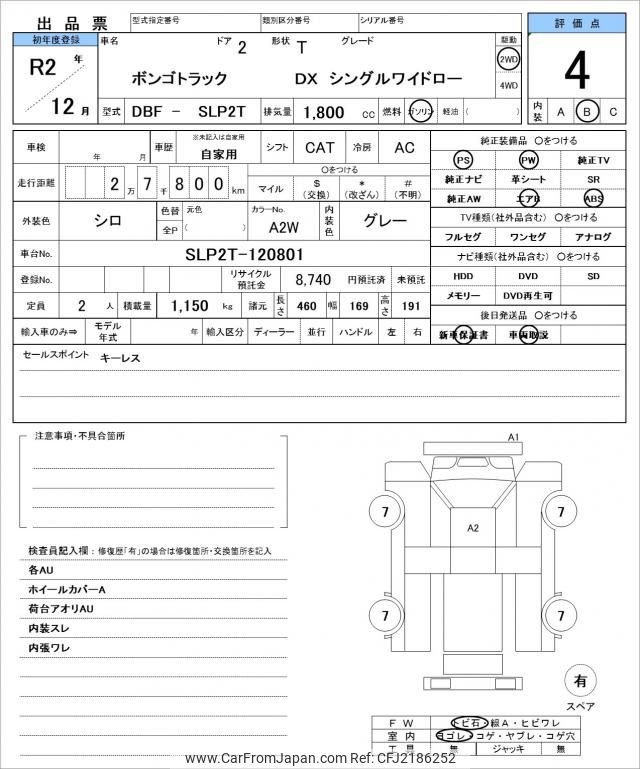 出品票
型式指定番号 類別区分番号 シリアル番号
評価点
初年度登録 車名 ドア 2 形状 T グレード 駆動
R2 年 ボンゴトラック DX シングルワイドロー 2WD 4
4WD
12 月 型式 DBF － SLP2T 排気量 1,800 cc 燃料 ガソリン 軽油 ( ) 内装 A B C
車検 年 月 車歴 ※未記入は自家用 自家用 シフト CAT 冷房 AC
純正装備品 〇をつける
PS PW 純正TV
走行距離 2 万 7 千 8 0 0 km 〇をつける
マイル $ (交換) * (改ざん) # (不明)
純正ナビ 革シート SR
純正AW エアB ABS
外装色 シロ 色替 元色 全P ( ) カラーNo. A2W 内装色 グレー
TV種類(社外品含む) 〇をつける
フルセグ ワンセグ アナログ
車台No. SLP2T-120801
ナビ種類(社外品含む) 〇をつける
登録No. リサイクル預託金 8,740 円預託済 未預託
HDD DVD SD
メモリー DVD再生可
定員 2 人 積載量 1,150 kg 諸元 長さ 460 幅 169 高さ 191
後日発送品 〇をつける
輸入車のみ⇒ モデル年式 年 輸入区分 ディーラー 並行 ハンドル 左 右
新車保証書 車両取説
セールスポイント キーレス
注意事項・不具合箇所
A1
7 7
A2
検査員記入欄：修復歴「有」の場合は修復箇所・交換箇所を記入
各AU
ホイールカバーA
荷台アオリAU
7 7
内装スレ
内張ワレ
有
スペア
ＦＷ トビ石・線A・ヒビワレ
室内 ヨゴレ・コゲ・ヤブレ・コゲ穴
工具 無 ジャッキ 無
www.CarFromJapan.com Ref: CFJ2186252